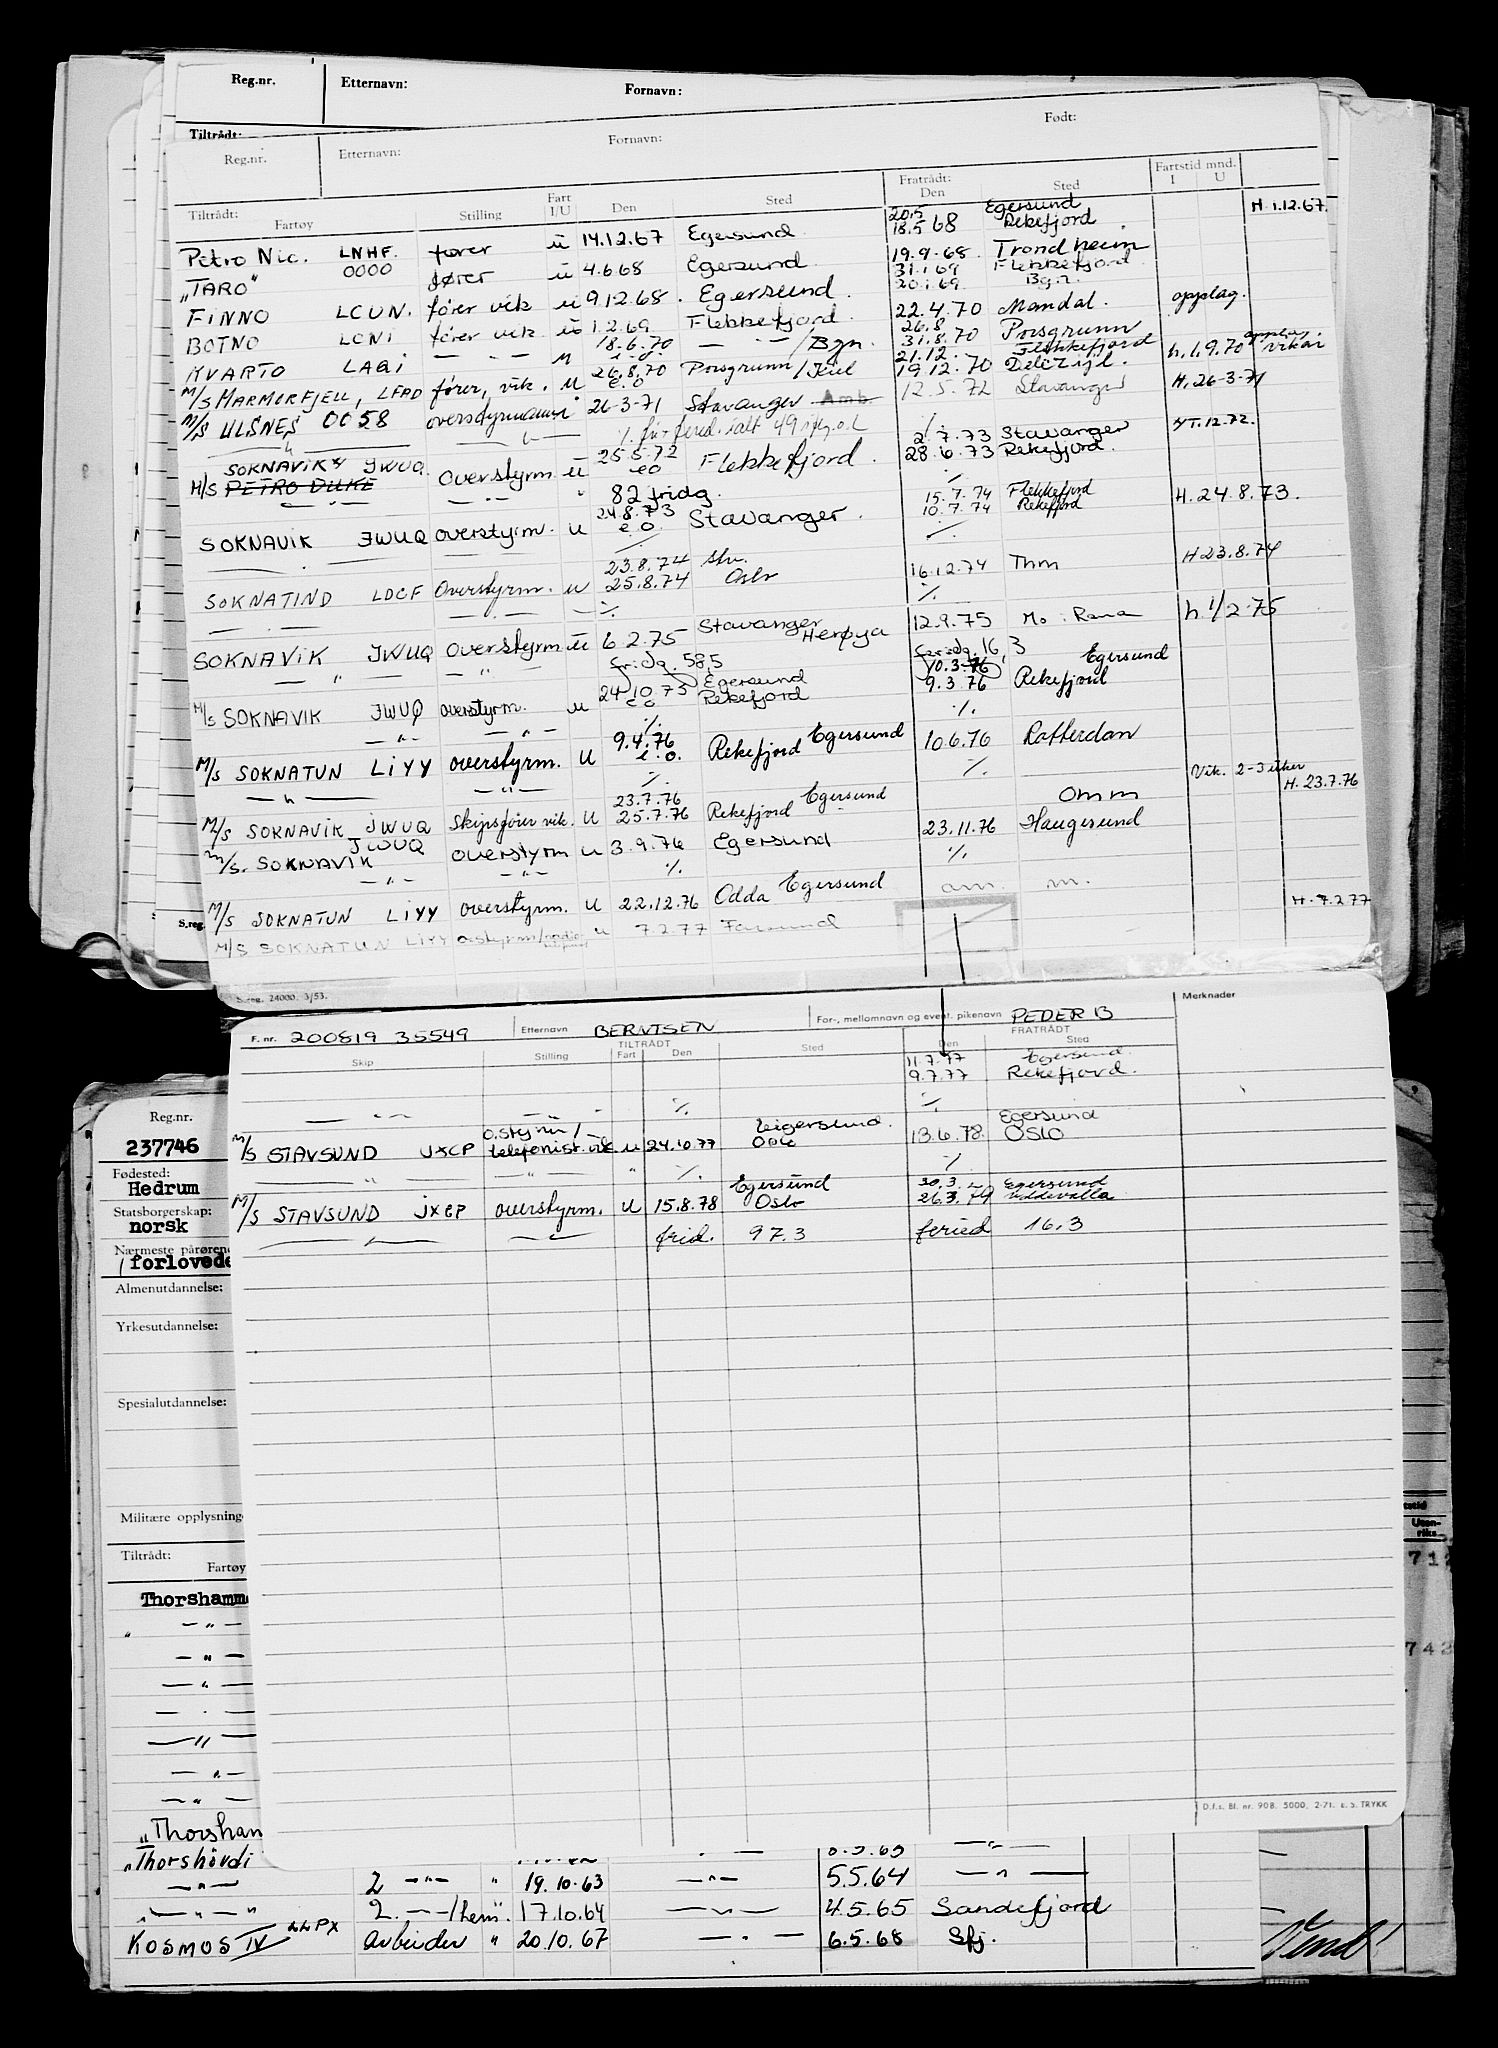 Reg.nr. Etternavn: Fornavn:
Tiltrådt:
Reg.nr. Etternavn: Fornavn: Født:
Tiltrådt: Fartøy Stilling Fart I/U Den Sted Fratrådt: Den Sted Fartstid mnd. I U
20.5 Egersund H. 1.12.67.
Petro Nic. LNHF. fører u 14.12.67 Egersund 18.5 68 Rekefjord
"TARO" 0000 fører u 4.6.68 Egersund 19.9.68. Trondheim
31.1.69 Flekkefjord
FINNO LCUN. fører vik u 9.12.68. Egersund. 20.1.69 Bgn.
BOTNO LCNI fører vik u 1.2.69 Flekkefjord. 22.4.70 Mandal. opplag.
18.6.70 26.8
KVARTO LAQI — " — u e.o. — " — /Bgn. 31.8.70 Porsgrunn
26.8.70 21.12. Flekkefjord h.1.9.70 vikar
M/S MARMORFJELL, LFAD fører, vik. u e.o Porsgrunn/Kiel 19.12.70 Delfzijl.
M/S ULSNES 0058 overstyrmann 26-3-71 Stavanger Amb. 12.5.72 Stavanger H. 26-3-71
— " — — " — ./.
25.5.72 2.7.73 Stavanger
SOKNAVIK JWUQ
M/S PETRO DUKE Overstyrm. u eo Flekkefjord. 28.6.73 Rekefjord.
— " — — " — " 82 fridg. ./.
24.8.73 15.7.74 Flekkefjord H. 24.8.73.
SOKNAVIK JWUQ overstyrm. u e.o. Stavanger. 10.7.74 Rekefjord
./. ./.
23.8.74 Stv. H 23.8.74
SOKNATIND LDCF Overstyrm. u 25.8.74 Oslo 16.12.74 Thm
— " — ./. ./.
Stavanger
SOKNAVIK JWUQ Overstyrm u 6.2.75 Herøya 12.9.75 Mo i Rana h. 1/2-75
— " — — " — fridg. 58,5 feriedg. 16,3
24.10.75 Egersund 10.3.76 Egersund
M/S SOKNAVIK JWUQ overstyrm. u e.o Rekefjord 9.3.76 Rekefjord
— " — — " — ./. ./.
9.4.76
M/S SOKNATUN LIYY overstyrm. u e.o. Rekefjord Egersund 10.6.76 Rotterdam
— " — — " — ./. ./. Vik. 2-3 uker
23.7.76 H. 23.7.76
M/S SOKNAVIK JWUQ Skipsfører vik. u 25.7.76 Rekefjord Egersund omm
M/S. SOKNAVIK JWUQ overstyrm u 3.9.76 Egersund 23.11.76 Haugesund
— " — — " — ./. ./.
M/S SOKNATUN LIYY overstyrm. u 22.12.76 Odda Egersund am. m. H. 7.2.77
M/S SOKNATUN LIYY o.styrm/radio u 7.2.77 Farsund
S.reg.
S.reg. 24000. 3/53.
F. nr. 200819 35549 Etternavn BERNTSEN For-, mellomnavn og event. pikenavn PEDER B Merknader
TILTRÅDT FRATRÅDT
Skip Stilling Fart Den Sted Den Sted
11.7.77 Egersund.
9.7.77 Rekefjord.
— " — — " — ./. ./.
o.styrm/ Eigersund. Egersund
M/S STAVSUND JXCP telefonist.vik u 24.10.77 Oslo 13.6.78. OSLO
— " — — " — " ./. ./.
Egersund 30.3. Egersund
M/S STAVSUND JXCP overstyrm. u 15.8.78 Oslo 26.3.79 Uddevalla
— " — — " — frid. 97.3 feried 16.3
D.f.s. Bl. nr. 908. 5000. 2-71. E.S. TRYKK
Reg.nr.
237746
Fødested:
Hedrum
Statsborgerskap:
norsk
Nærmeste pårørende
forlovede
Almenutdannelse:
Yrkesutdannelse:
Spesialutdannelse:
Militære opplysning
Tiltrådt:
Fartøy
Uten-
riks
712
Thorshamm
" — " —
— " —
— " — 742
— " —
— " —
— " —
— " —
"Thorshan
"Thorshövdi — " —
— " — 2 — " — " 19.10.63 — " — 5.5.64 — " —
" — " — " 2. — " — "17.10.64 — " — 4.5.65 Sandefjord
KOSMOS IV LLPX arbeider " 20.10.67 — " — 6.5.68 Sfj. Vend!